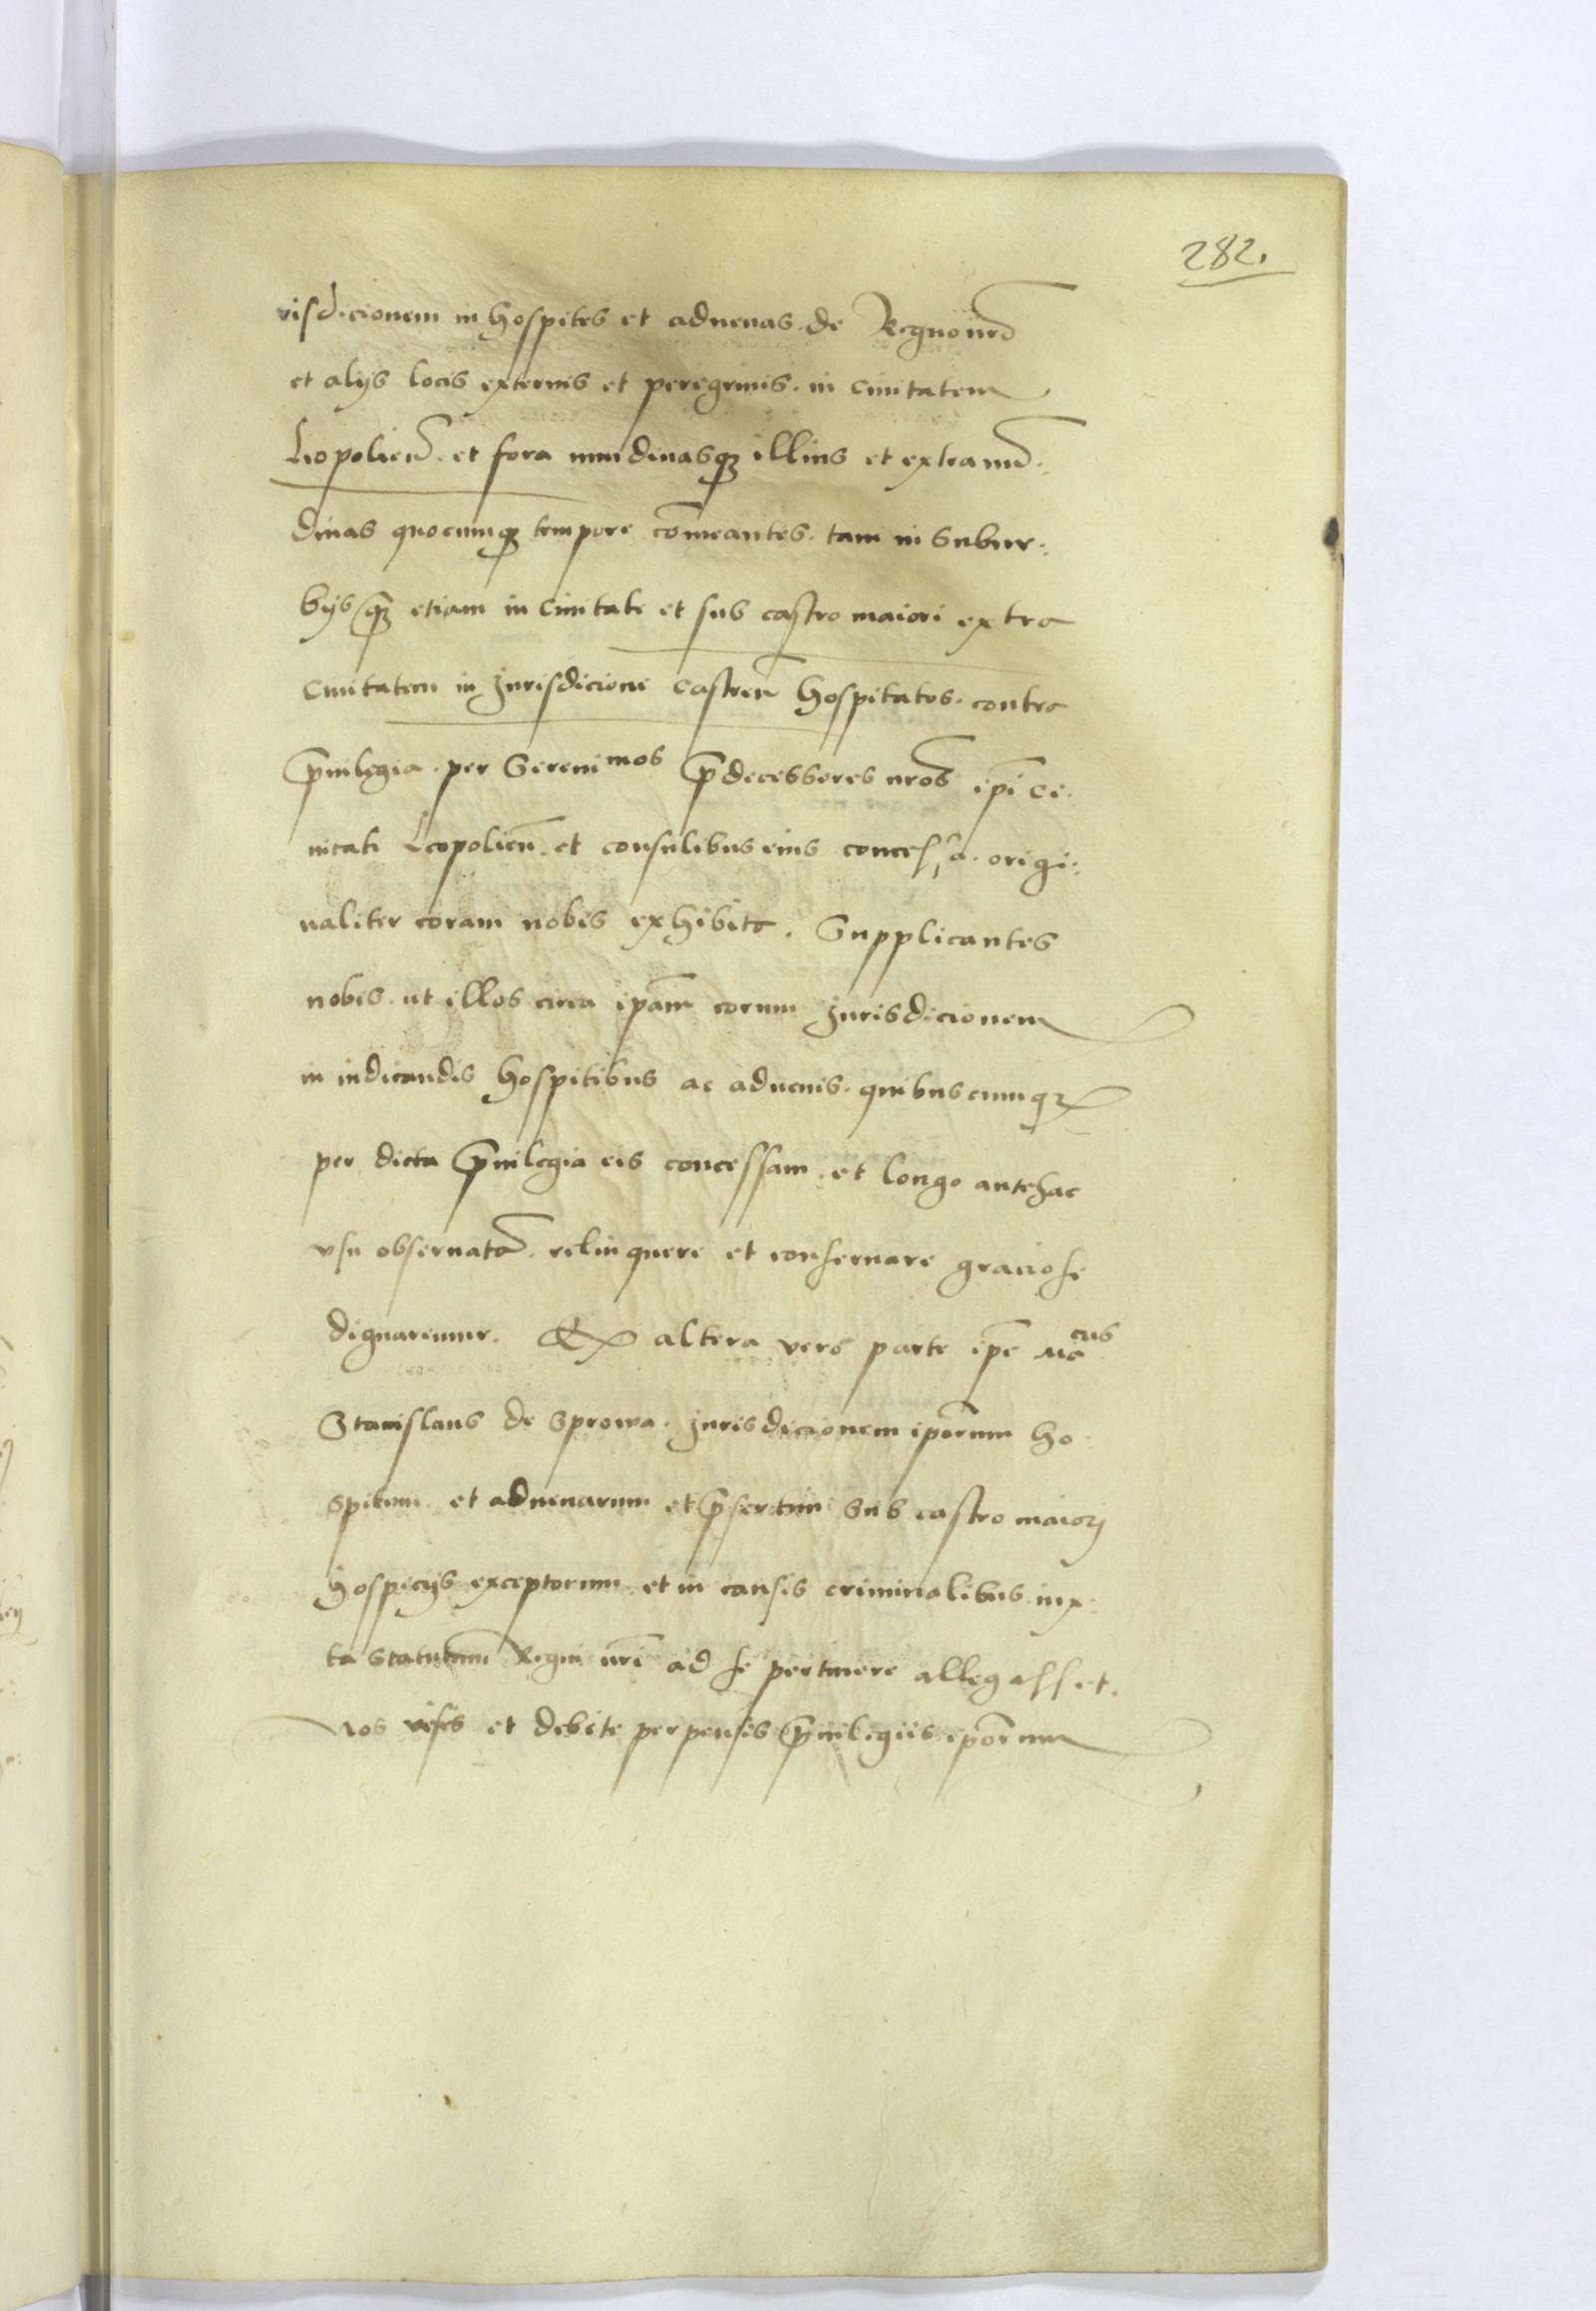 282.
risdicionem in hospites et aduenas de Regno nr̄o
et alijs locis externis et peregrinis in ciuitatem
Leopolien̄. et fora nundinasq₃ illius et extra nun̄:
dinas quocumq₃ tempore com̄eantes. tam in Subur:
bijs q̄₃ etiam in Ciuitate et sub castro maiori extra
Ciuitatem in Jurisdicione Castren̄ hospitatos. contra
p̄uilegia. per Sereniᵐᵒˢ p̄decessores nr̄os ip̄i Ci
uitati Leopolien̄ et consulibus eius concessa. origi:
naliter coram nobis exhibita. Supplicantes
nobis. ut illos circa ip̄am eorum Jurisdicionem
in iudicandis hospitibus ac aduenis. quibuscumq₃
per dicta p̄uilegia eis concessam. et longo antehac
vsu obseruatā. relinquere et conseruare graciose
dignaremur. Ex altera vero parte ip̄e Mᶜᵘˢ
Stanislaus de Sprowa. Jurisdicionem ip̄orum ho
spitum. et aduenarum et p̄sertim Sub castro maiori
hospicijs exceptorum. et in causis criminalibus iux:
ta Statutum Regni nr̄i ad se pertinere allegasset.
Nos visis et debite perpensis p̄uilegiis ip̄orum